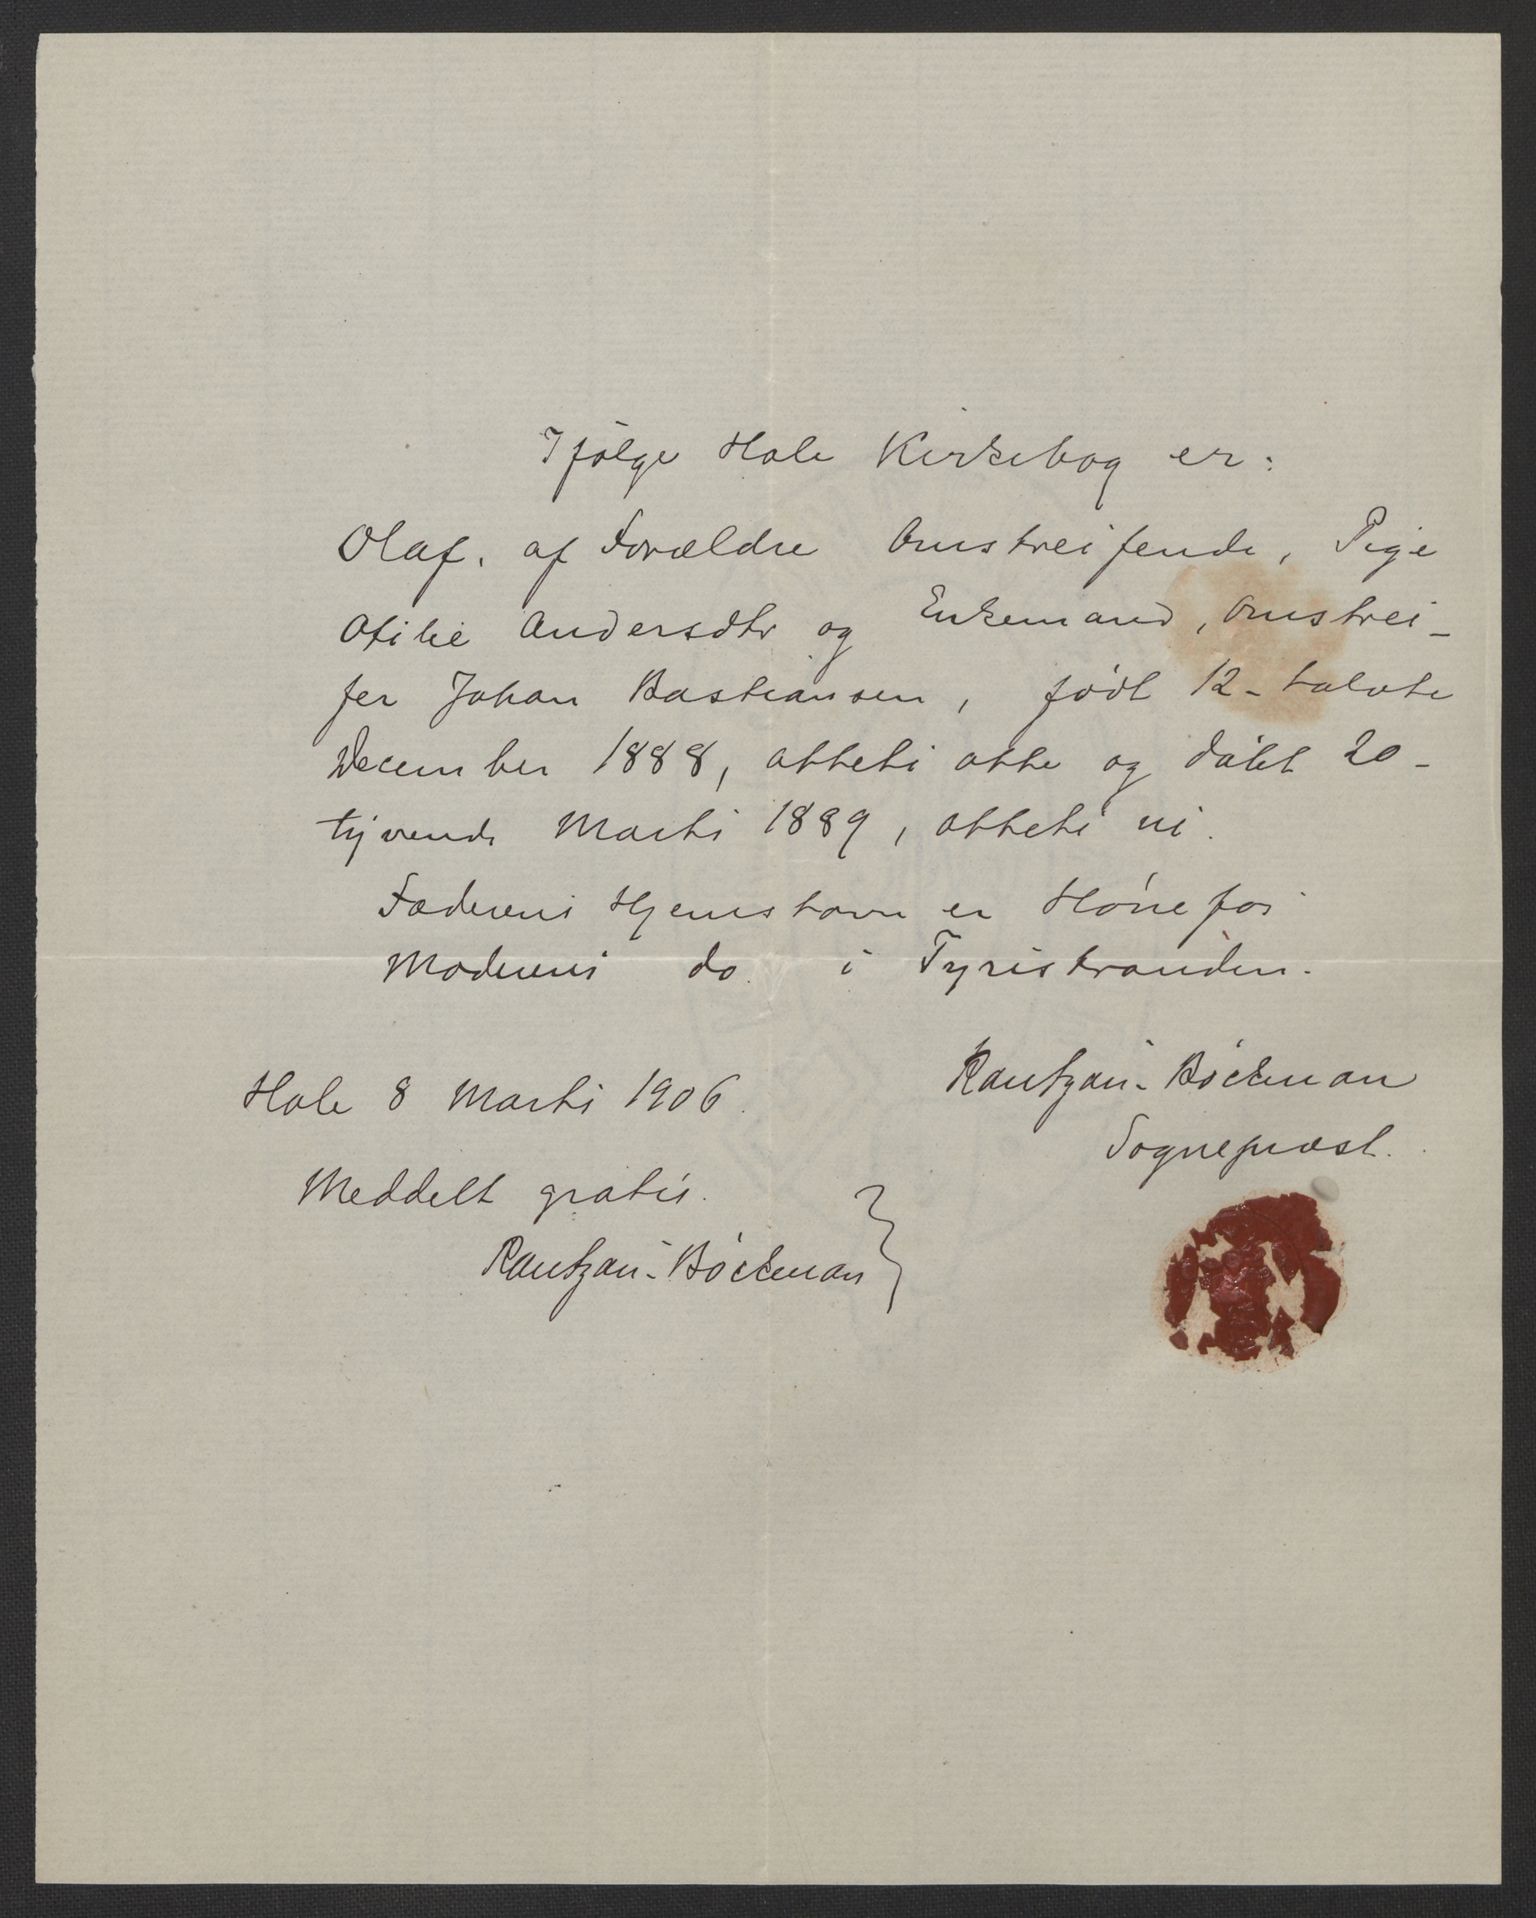 Ifølge Hole Kirkebog er:
Olaf, af Forældre Omstreifende, Pige
Otilie Andersdtr og Enkemand, Omstrei-
fer Johan Bastiansen, født 12-tolvte
December 1888, otteti otte og døbt 20-
tyvende Marts 1889, otteti ni.
Faderens Hjemstavn er Hønefos
Moderens do. i Tyristranden.
Rantzau-Böckman
Sogneprest.
Hole 8 Marts 1906.
Meddelt gratis.
Rantzau-Böckman